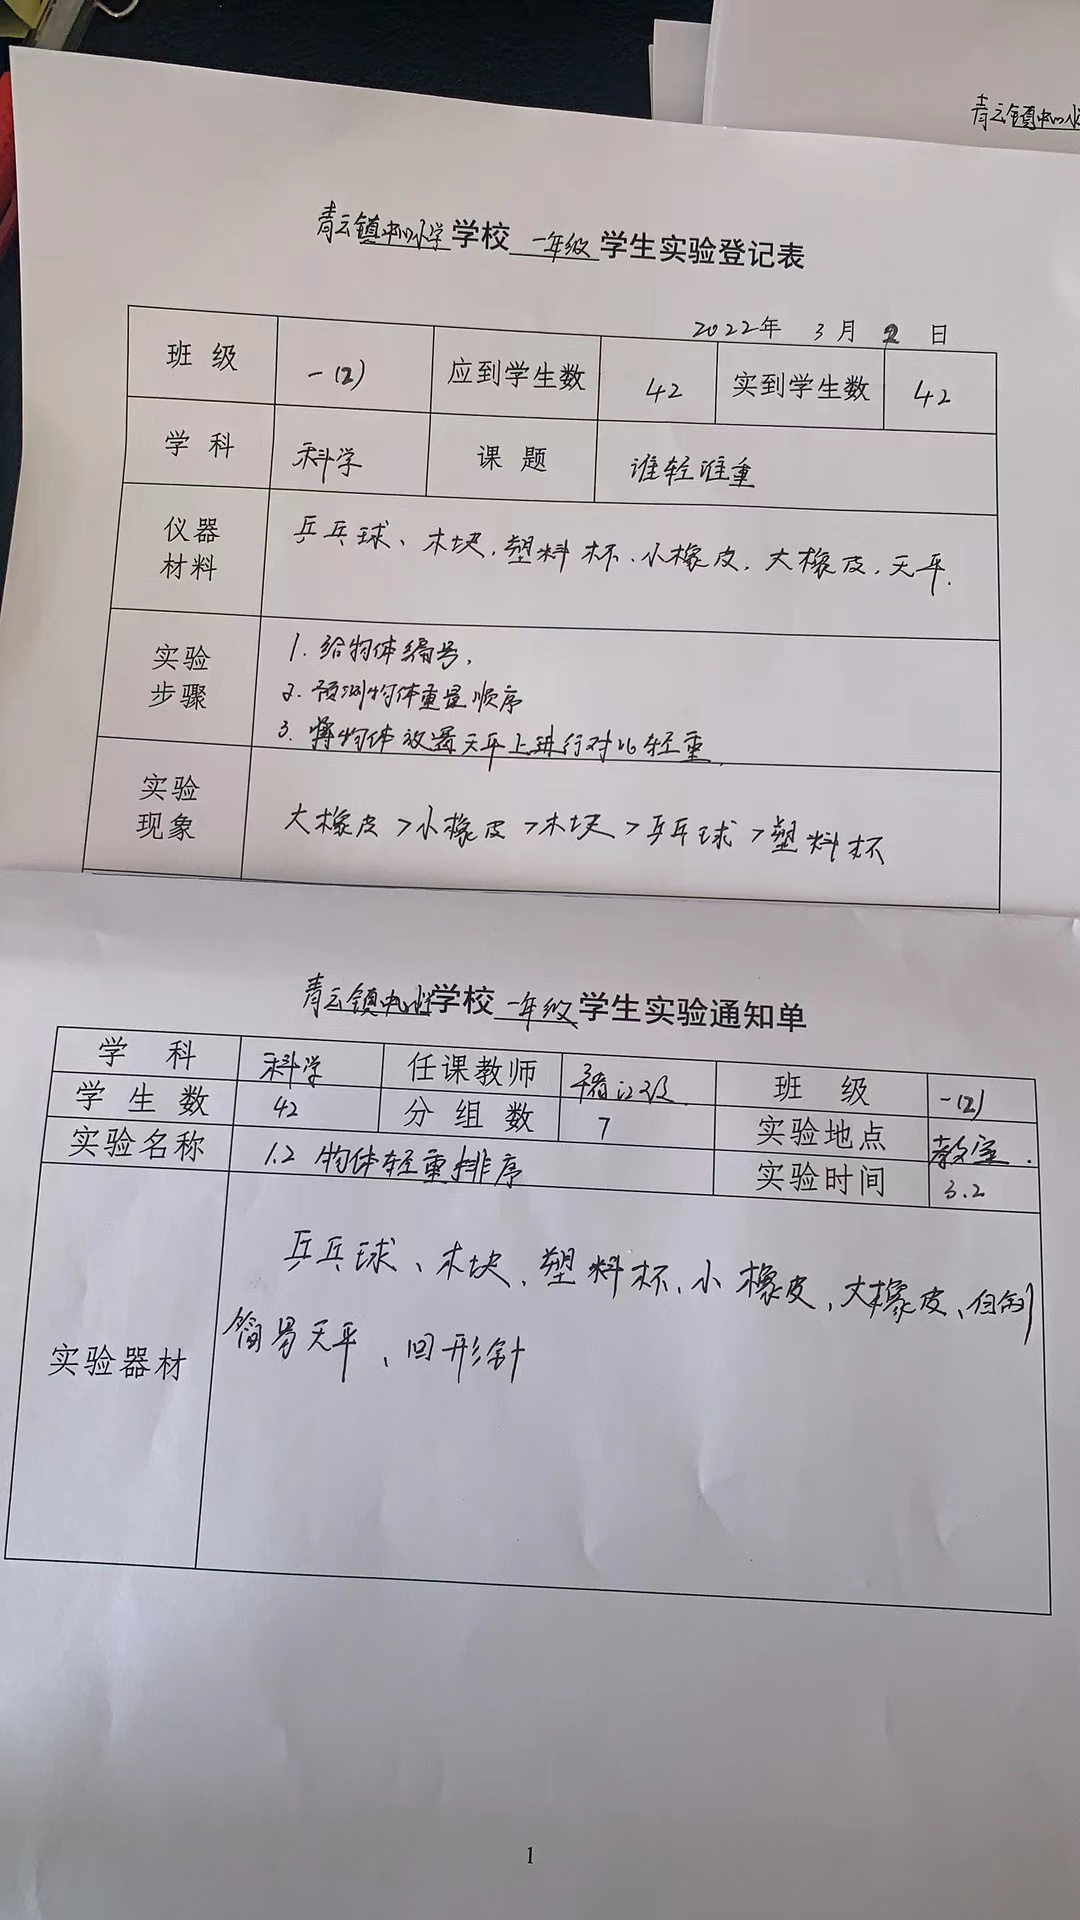 青云镇中心小
青云镇中心小学学校 一年级 学生实验登记表
2022年 3月 2日
班级 一(2) 应到学生数 42 实到学生数 42
学科 科学 课题 谁轻谁重
仪器材料 乒乓球、木块、塑料杯、小橡皮、大橡皮、天平.
实验步骤 1.给物体编号,
2.预测物体重量顺序
3.将物体放置天平上进行对比轻重.
实验现象 大橡皮>小橡皮>木块>乒乓球>塑料杯
青云镇中心小学学校 一年级 学生实验通知单
学科 科学 任课教师 班级 一(2)
学生数 42 分组数 7 实验地点 教室.
实验名称 1.2 物体轻重排序 实验时间 3.2
实验器材 乒乓球、木块、塑料杯、小橡皮、大橡皮、自制
简易天平、回形针
1